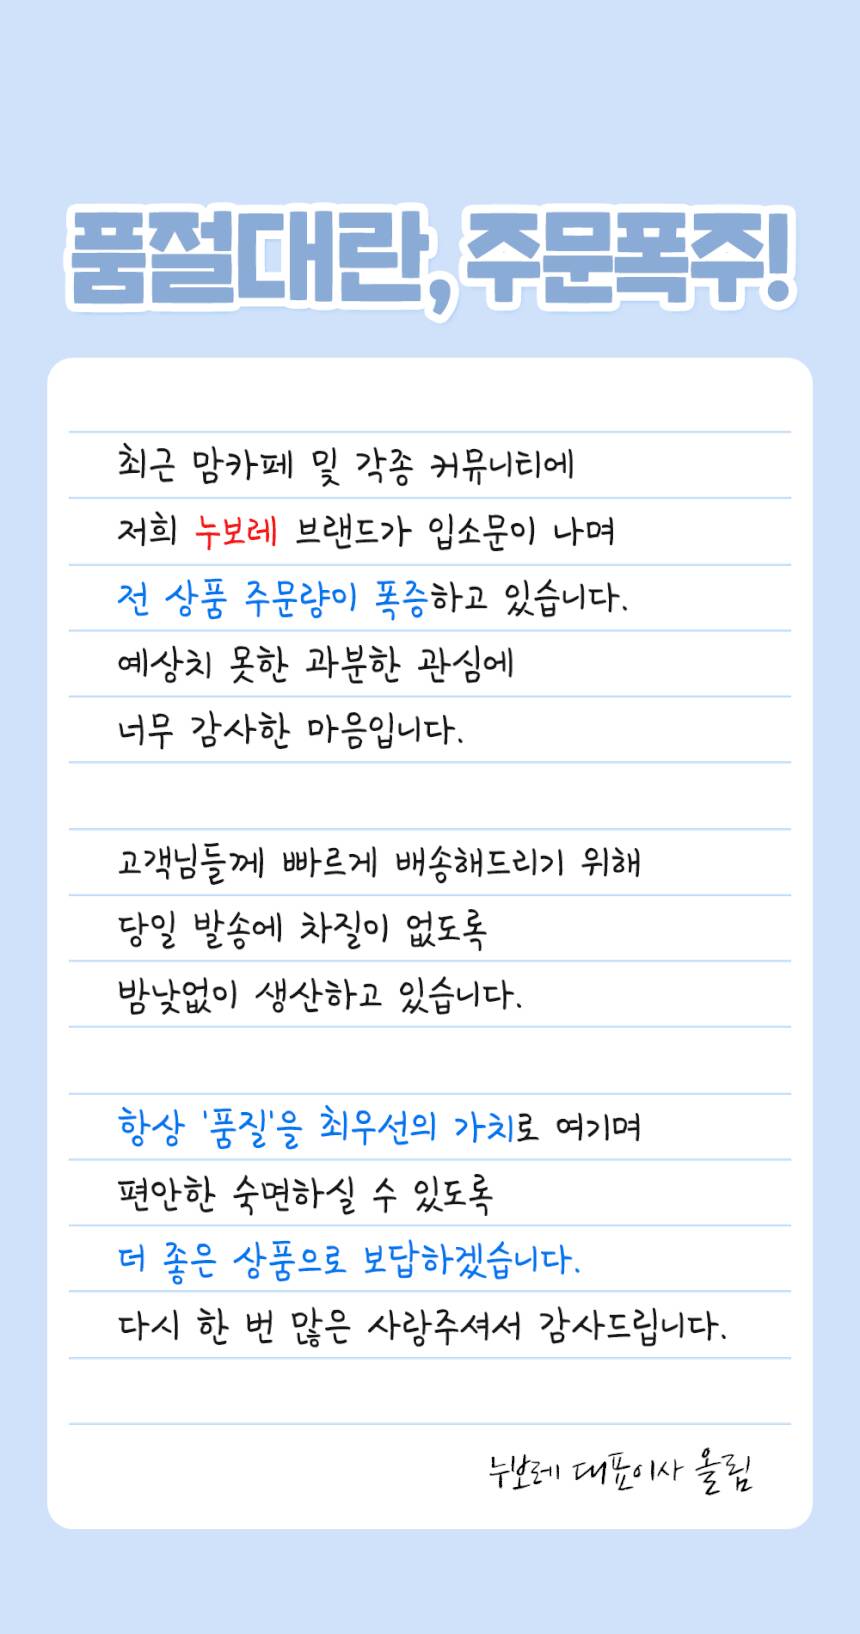 품절대란, 주문폭주!
최근 맘카페 및 각종 커뮤니티에
저희 누보레 브랜드가 입소문이 나며
전 상품 주문량이 폭증하고 있습니다.
예상치 못한 과분한 관심에
너무 감사한 마음입니다.
고객님들께 빠르게 배송해드리기 위해
당일 발송에 차질이 없도록
밤낮없이 생산하고 있습니다.
항상 '품질'을 최우선의 가치로 여기며
편안한 숙면하실 수 있도록
더 좋은 상품으로 보답하겠습니다.
다시 한 번 많은 사랑주셔서 감사드립니다.
누보레 대표이사 올림